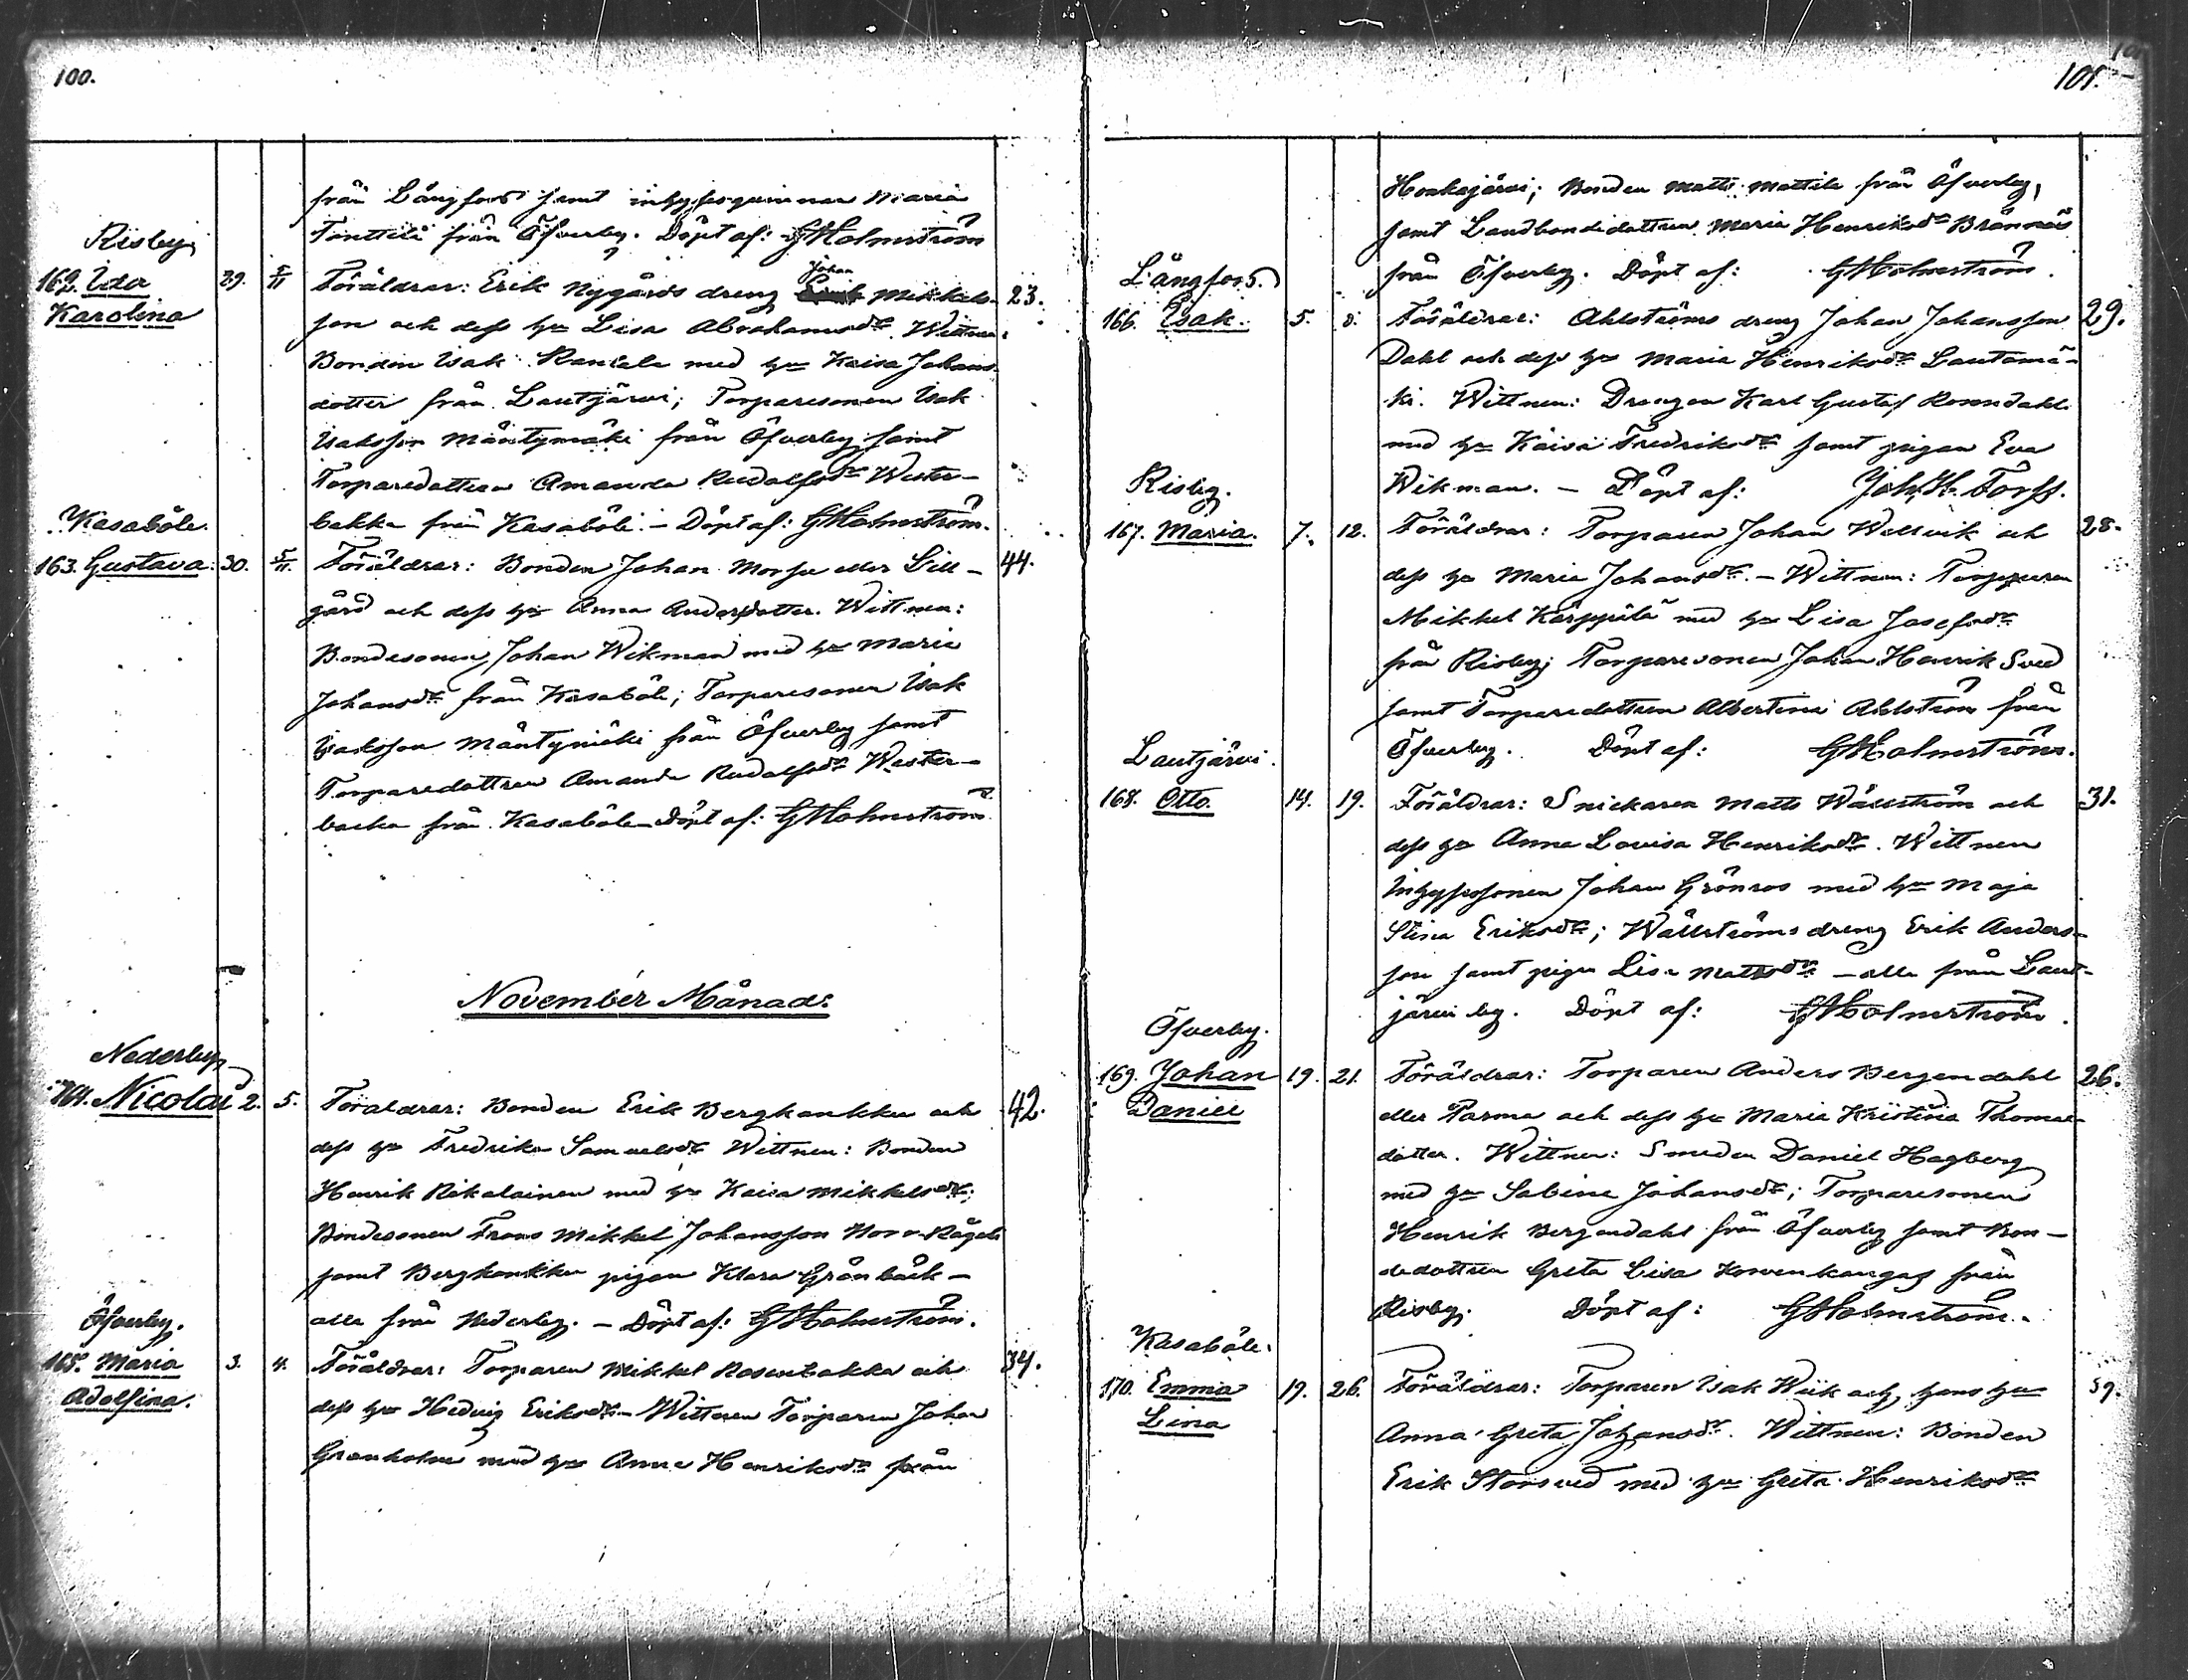 100.
från Långfors samt inhysesqvinnan Maria
Tonttila från Öfverby. Döpt af: GHolmström
Risby
162. Ida 29. 5/11 Föräldrar: Erik Nygårds dreng Johan Mikkels- 23.
Karolina son och dess hu Lisa Abrahamsdr. Wittnen:
Bonden Isak Rantala med hu Kaisa Johans-
dotter från Lautjärvi; Torparesonen Isak
Isaksson Mäntymäki från Öfverby samt
Torparedottren Amanda Rudolfsdr Wester-
Kasaböle. backa från Kasaböle. – Döpt af: GHolmström.
163. Gustava. 30. 5/11 Föräldrar: Bonden Johan Morsu eller Lill- 44.
gård och dess hu Anna Andersdotter. Wittnen:
Bondesonen Johan Wikman med hu Maria
Johansdr från Kasaböle; Torparesonen Isak
Isaksson Mäntymäki från Öfverby samt
Torparedottren Amanda Rudolfsdr Wester-
backa från Kasaböle – Döpt af: GHolmström
November Månad:
Nederby
164. Nicolai 2. 5. Föräldrar: Bonden Erik Bergkankku och 42.
dess hu Fredrika Samuelsdr Wittnen: Bonden
Henrik Rikalainen med hu Kaisa Mikkelsdr;
Bondesonen Frans Mikkel Johansson Norr-Kågeli
samt Bergkankku pigan Klara Grönbäck –
Öfverby. alla från Nederby. – Döpt af: GHolmström.
165. Maria 3. 4. Föräldrar: Torparen Mikkel Rosenbakka och 34.
Adolfina. dess hu Hedvig Eriksdr – Wittnen Torparen Johan
Granholm med hu Anna Henriksdr från
101.
Honkajärvi; Bonden Matts Mattila från Öfverby,
samt Landbondedottren Maria Henriksdr Brännäs
Långfors. från Öfverby. Döpt af: GHolmström.
166. Isak. 5. 8. Föräldrar: Ahlströms dreng Johan Johansson 29.
Dahl och dess hu Maria Henriksdr Lautamä-
ki. Wittnen: Drengen Karl Gustaf Rosendahl
med hu Kaisa Fredriksdr samt pigan Eva
Risby. Wikman. – Döpt af: Joh. H. Forss.
167. Maria. 7. 12. Föräldrar: Torparen Johan Wellvik och 28.
dess hu Maria Johansdr. – Wittnen: Torparen
Mikkel Karppila med hu Lisa Josefsdr
från Risby; Torparesonen Johan Henrik Sved
samt Torparedottren Albertina Ahlström från
Lautjärvi. Öfverby. Döpt af: GHolmström.
168. Otto. 14. 19. Föräldrar: Snickaren Matts Wällström och 31.
dess hu Anna Lovisa Henriksdr. Wittnen
Inhysessonen Johan Grönroos med hu Maja
Stina Eriksdr; Wällströms dreng Erik Anders-
son samt pigan Lisa Mattsdr – alla från Laut-
järvi by. Döpt af: GHolmström.
Öfverby.
169. Johan 19. 21. Föräldrar: Torparen Anders Bergendahl 26.
Daniel eller Parma och dess hu Maria Kristina Thomas-
dotter. Wittnen: Smeden Daniel Hagberg
med hu Sabina Johansdr; Torparesonen
Henrik Bergendahl från Öfverby samt Bon-
dedottren Greta Lisa Korvenkangas från
Risby. Döpt af: GHolmström.
Kasaböle.
170. Emma 19. 26. Föräldrar: Torparen Isak Wiik och hans hu 39.
Lina Anna Greta Johansdr. Wittnen: Bonden
Erik Storsved med hu Greta Henriksdr